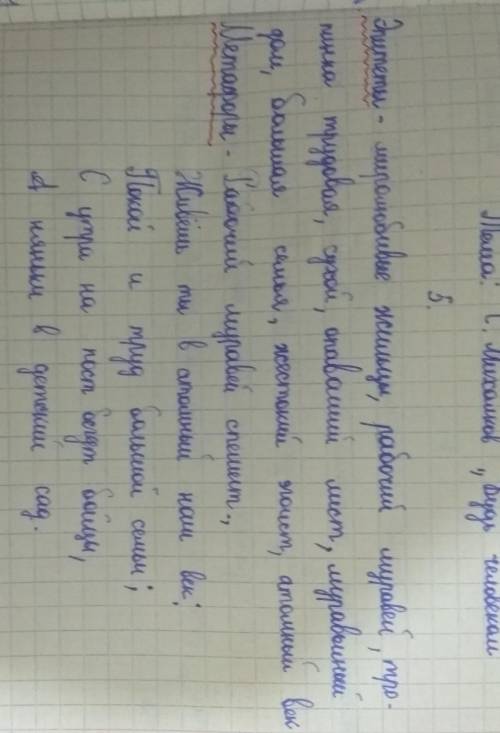 Тема: С. Михалков "Будь человеком
5.
Эпитеты - миролюбивые жильцы, рабочий муравей, тро-
пинка трудовая, сухой, опавший лист, муравьиный
дом, большая семья, жестокий хлыст, атомный век
Метафоры - Рабочий муравей спешит.,
Живёшь ты в атомный наш век;
Покой и труд большой семьи;
С утра на пост бегут бойцы,
А няньки в детский сад.